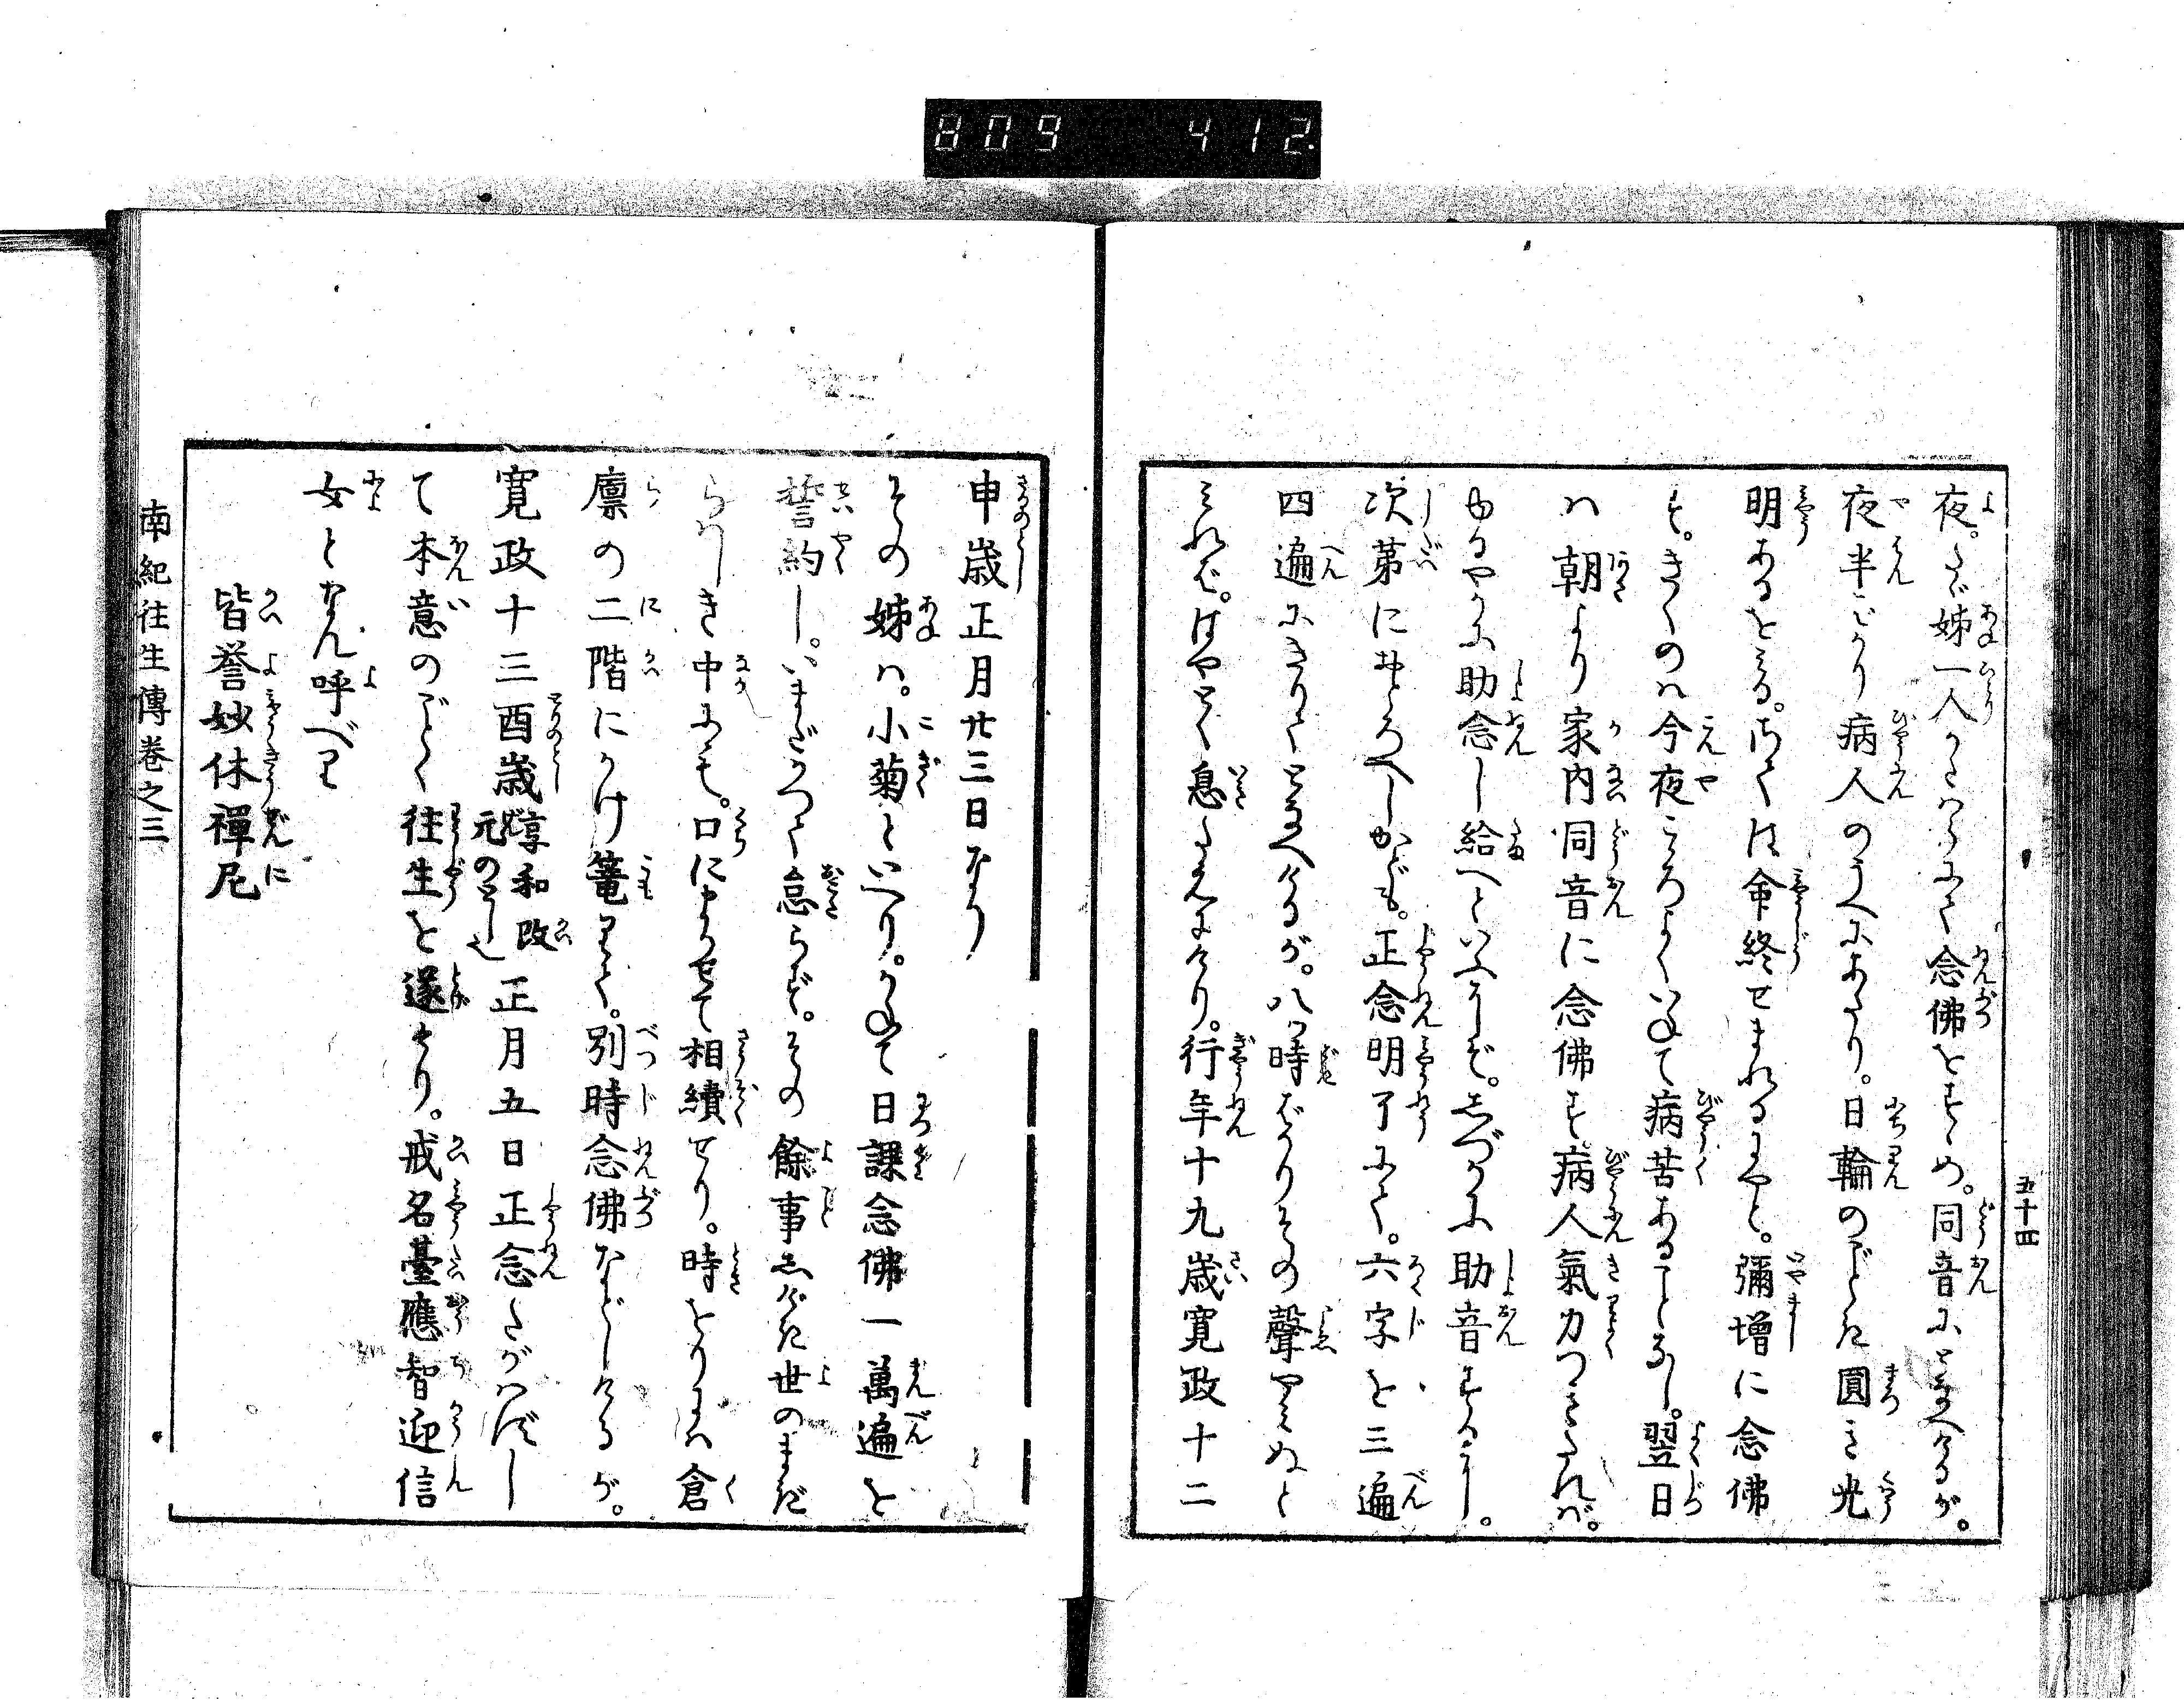 809 412
五十四
夜。たゞ姉一人かたはらにて念佛をすゝめ。同音にとなへけるが。
夜半ばかり病人のうへにあたり。日輪のごとき圓き光
明あるをみる。さては命終せまれるにやと。彌増に念佛
す。きくのは今夜こゝろよくいねて病苦あることなし。翌日
は朝より家内同音に念佛す病人氣力つきたれば。
ゆるやかに助念し給へといへりしぞ。しづかに助音するよし。
次第におとろへしかども。正念明了にて。六字を三遍
四遍にきりてとなへけるが。八時ばかりその聲やみぬと
みれば。はやく息たえにけり。行年十九歳寛政十二
申歳正月廿三日なり
その姉は。小菊といへり。かねて日課念佛一萬遍を
誓約し。いまだかつて怠らず。その餘事しげき世のまだ
らはしき中にも。口にまかせて相續せり。時をりには倉
廩の二階にかけ篭りて。別時念佛などしけるが。
寛政十三酉歳享和改元のとし也正月五日正念たがはずし
て本意のごとく往生を遂たり。戒名臺應智迎信
女となん呼べり
皆誉妙休禪尼
南紀往生傳巻之三